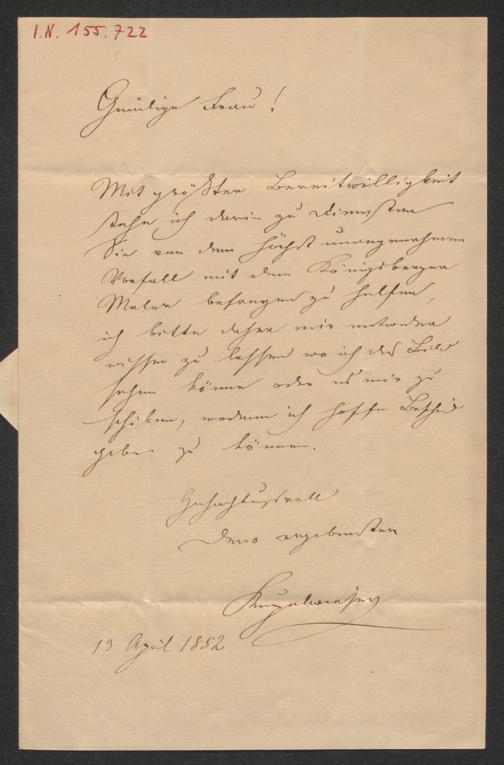 I.N. 155.722
Gnädige Frau!
Mit größter Bereitwilligkeit
stehe ich darin zu Diensten
Sie von dem höchst unangenehmen
Vorfall mit dem Königsberger
Maler befreyen zu helfen,
ich bitte daher mir entweder
wissen zu lassen wo ich das Bild
sehen könne oder es mir zu
schiken, worüber ich hoffe Bescheid
geben zu können.
Hochachtungsvoll
Dero ergebensten
Kupelwieser
13 April 1852